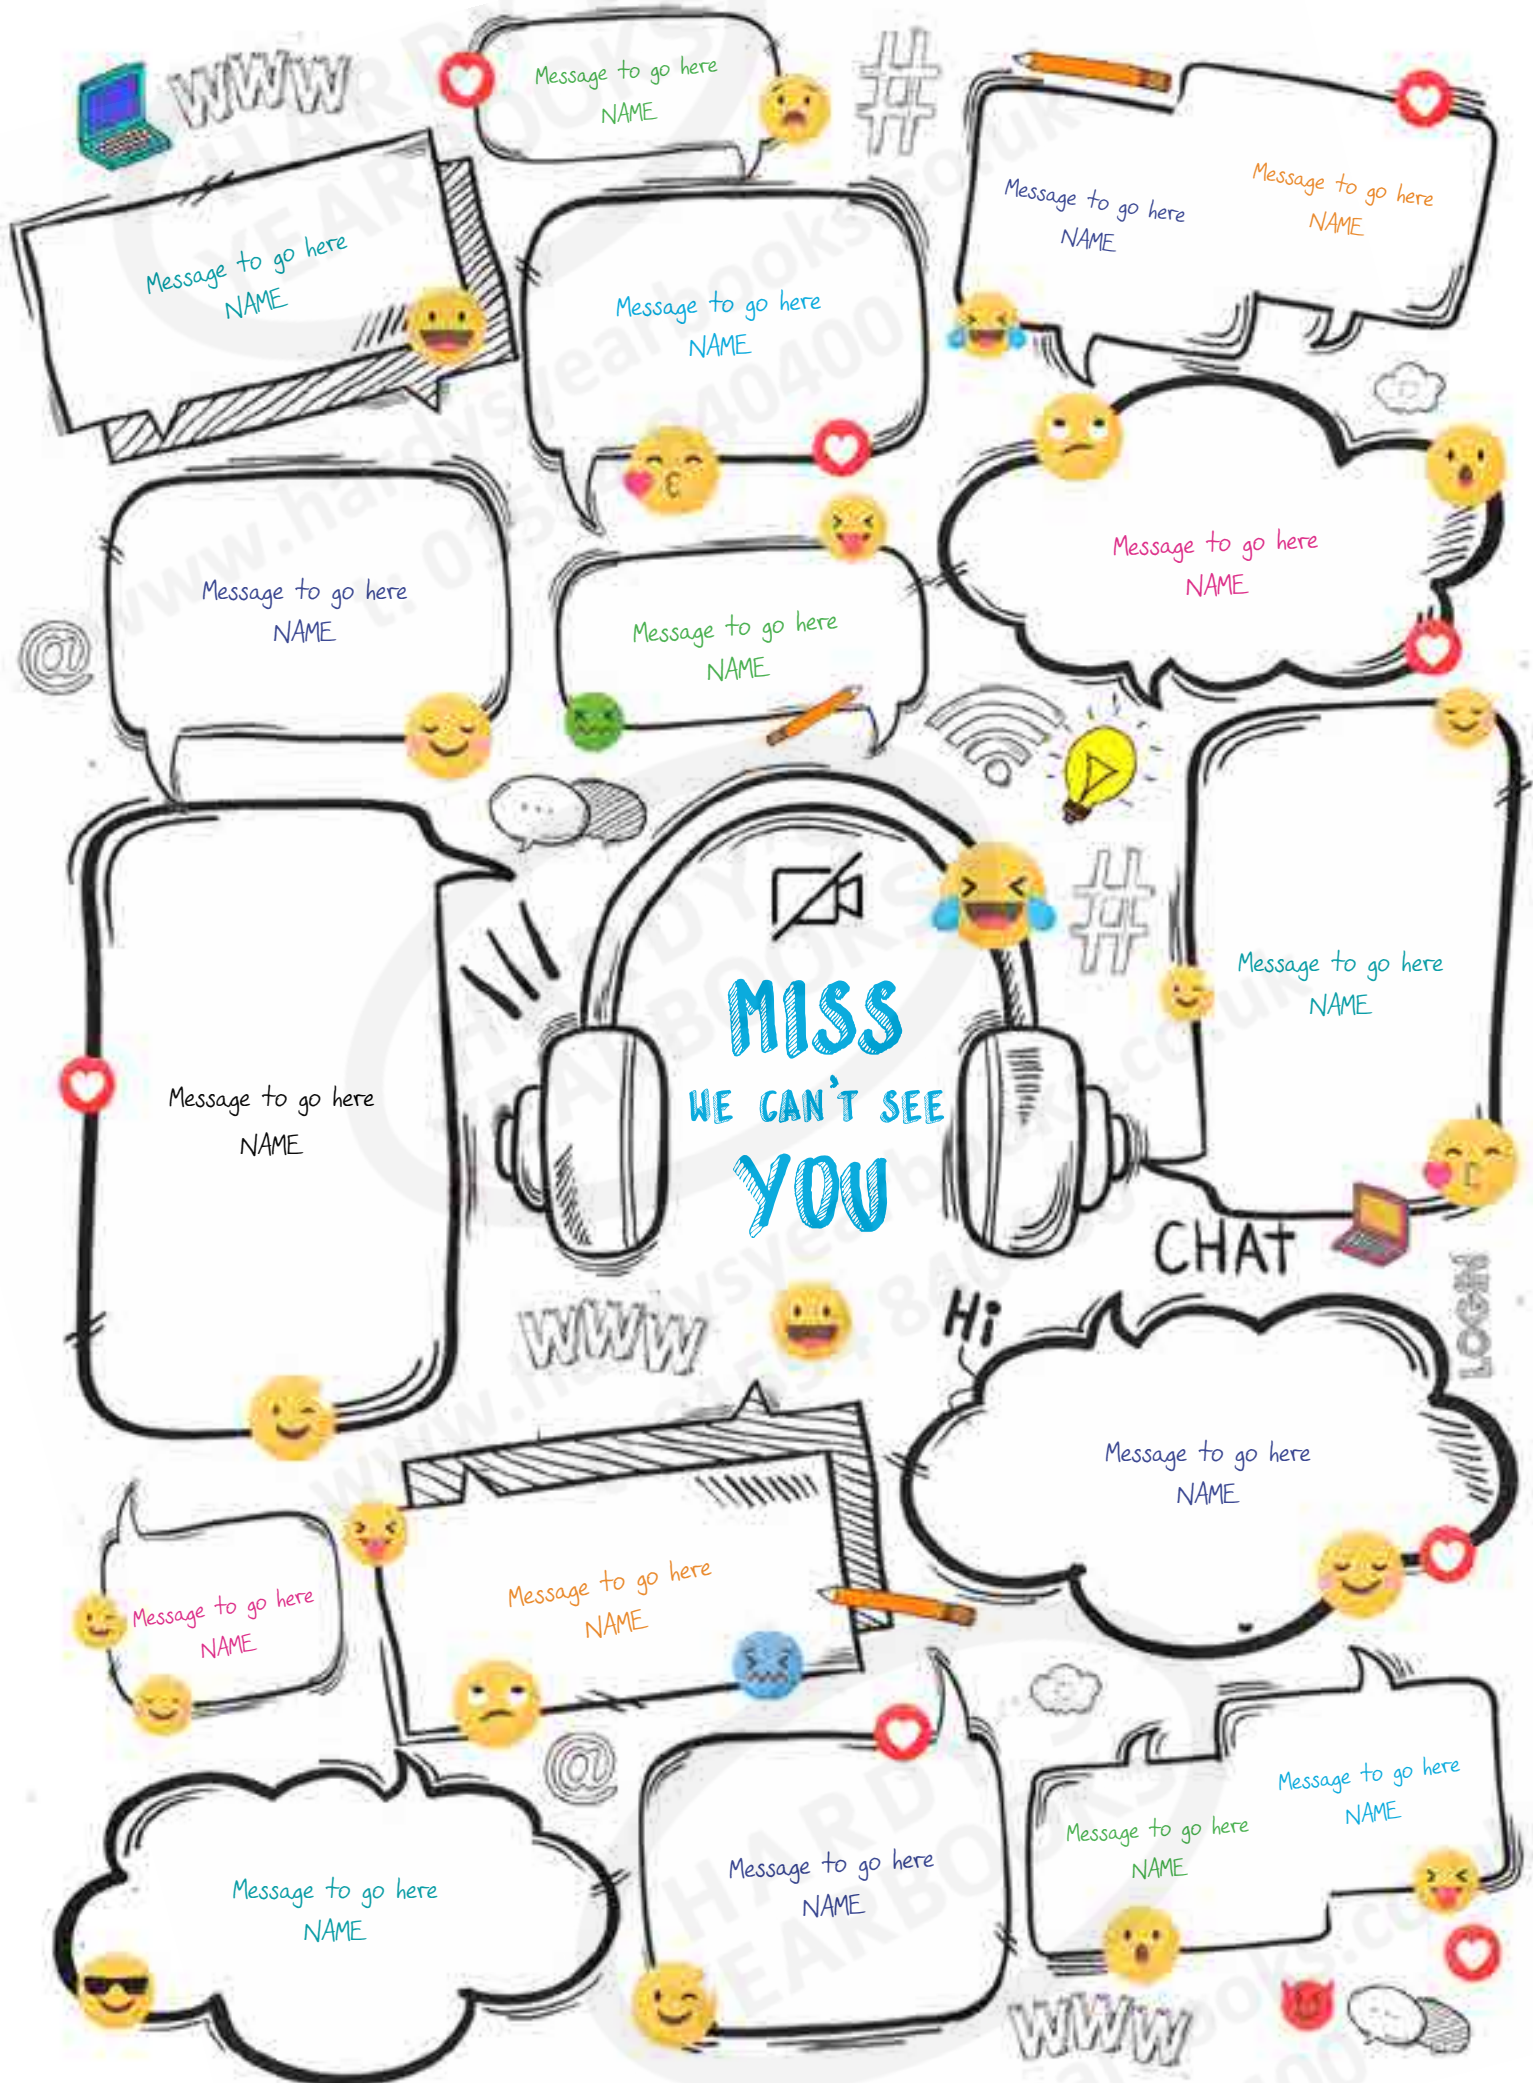 WWW
Message to go here
NAME
#
Message to go here
NAME
Message to go here
NAME
Message to go here
NAME
Message to go here
NAME
Message to go here
NAME
Message to go here
NAME
Message to go here
NAME
@
Message to go here
NAME
#
MISS
WE CAN'T SEE
YOU
Message to go here
NAME
Message to go here
NAME
CHAT
Hi
LOGIN
WWW
Message to go here
NAME
Message to go here
NAME
Message to go here
NAME
@
Message to go here
NAME
Message to go here
NAME
Message to go here
NAME
Message to go here
NAME
WWW
HARDY'S
YEARBOOKS
www.hardysyearbooks.co.uk
t: 01594 840400